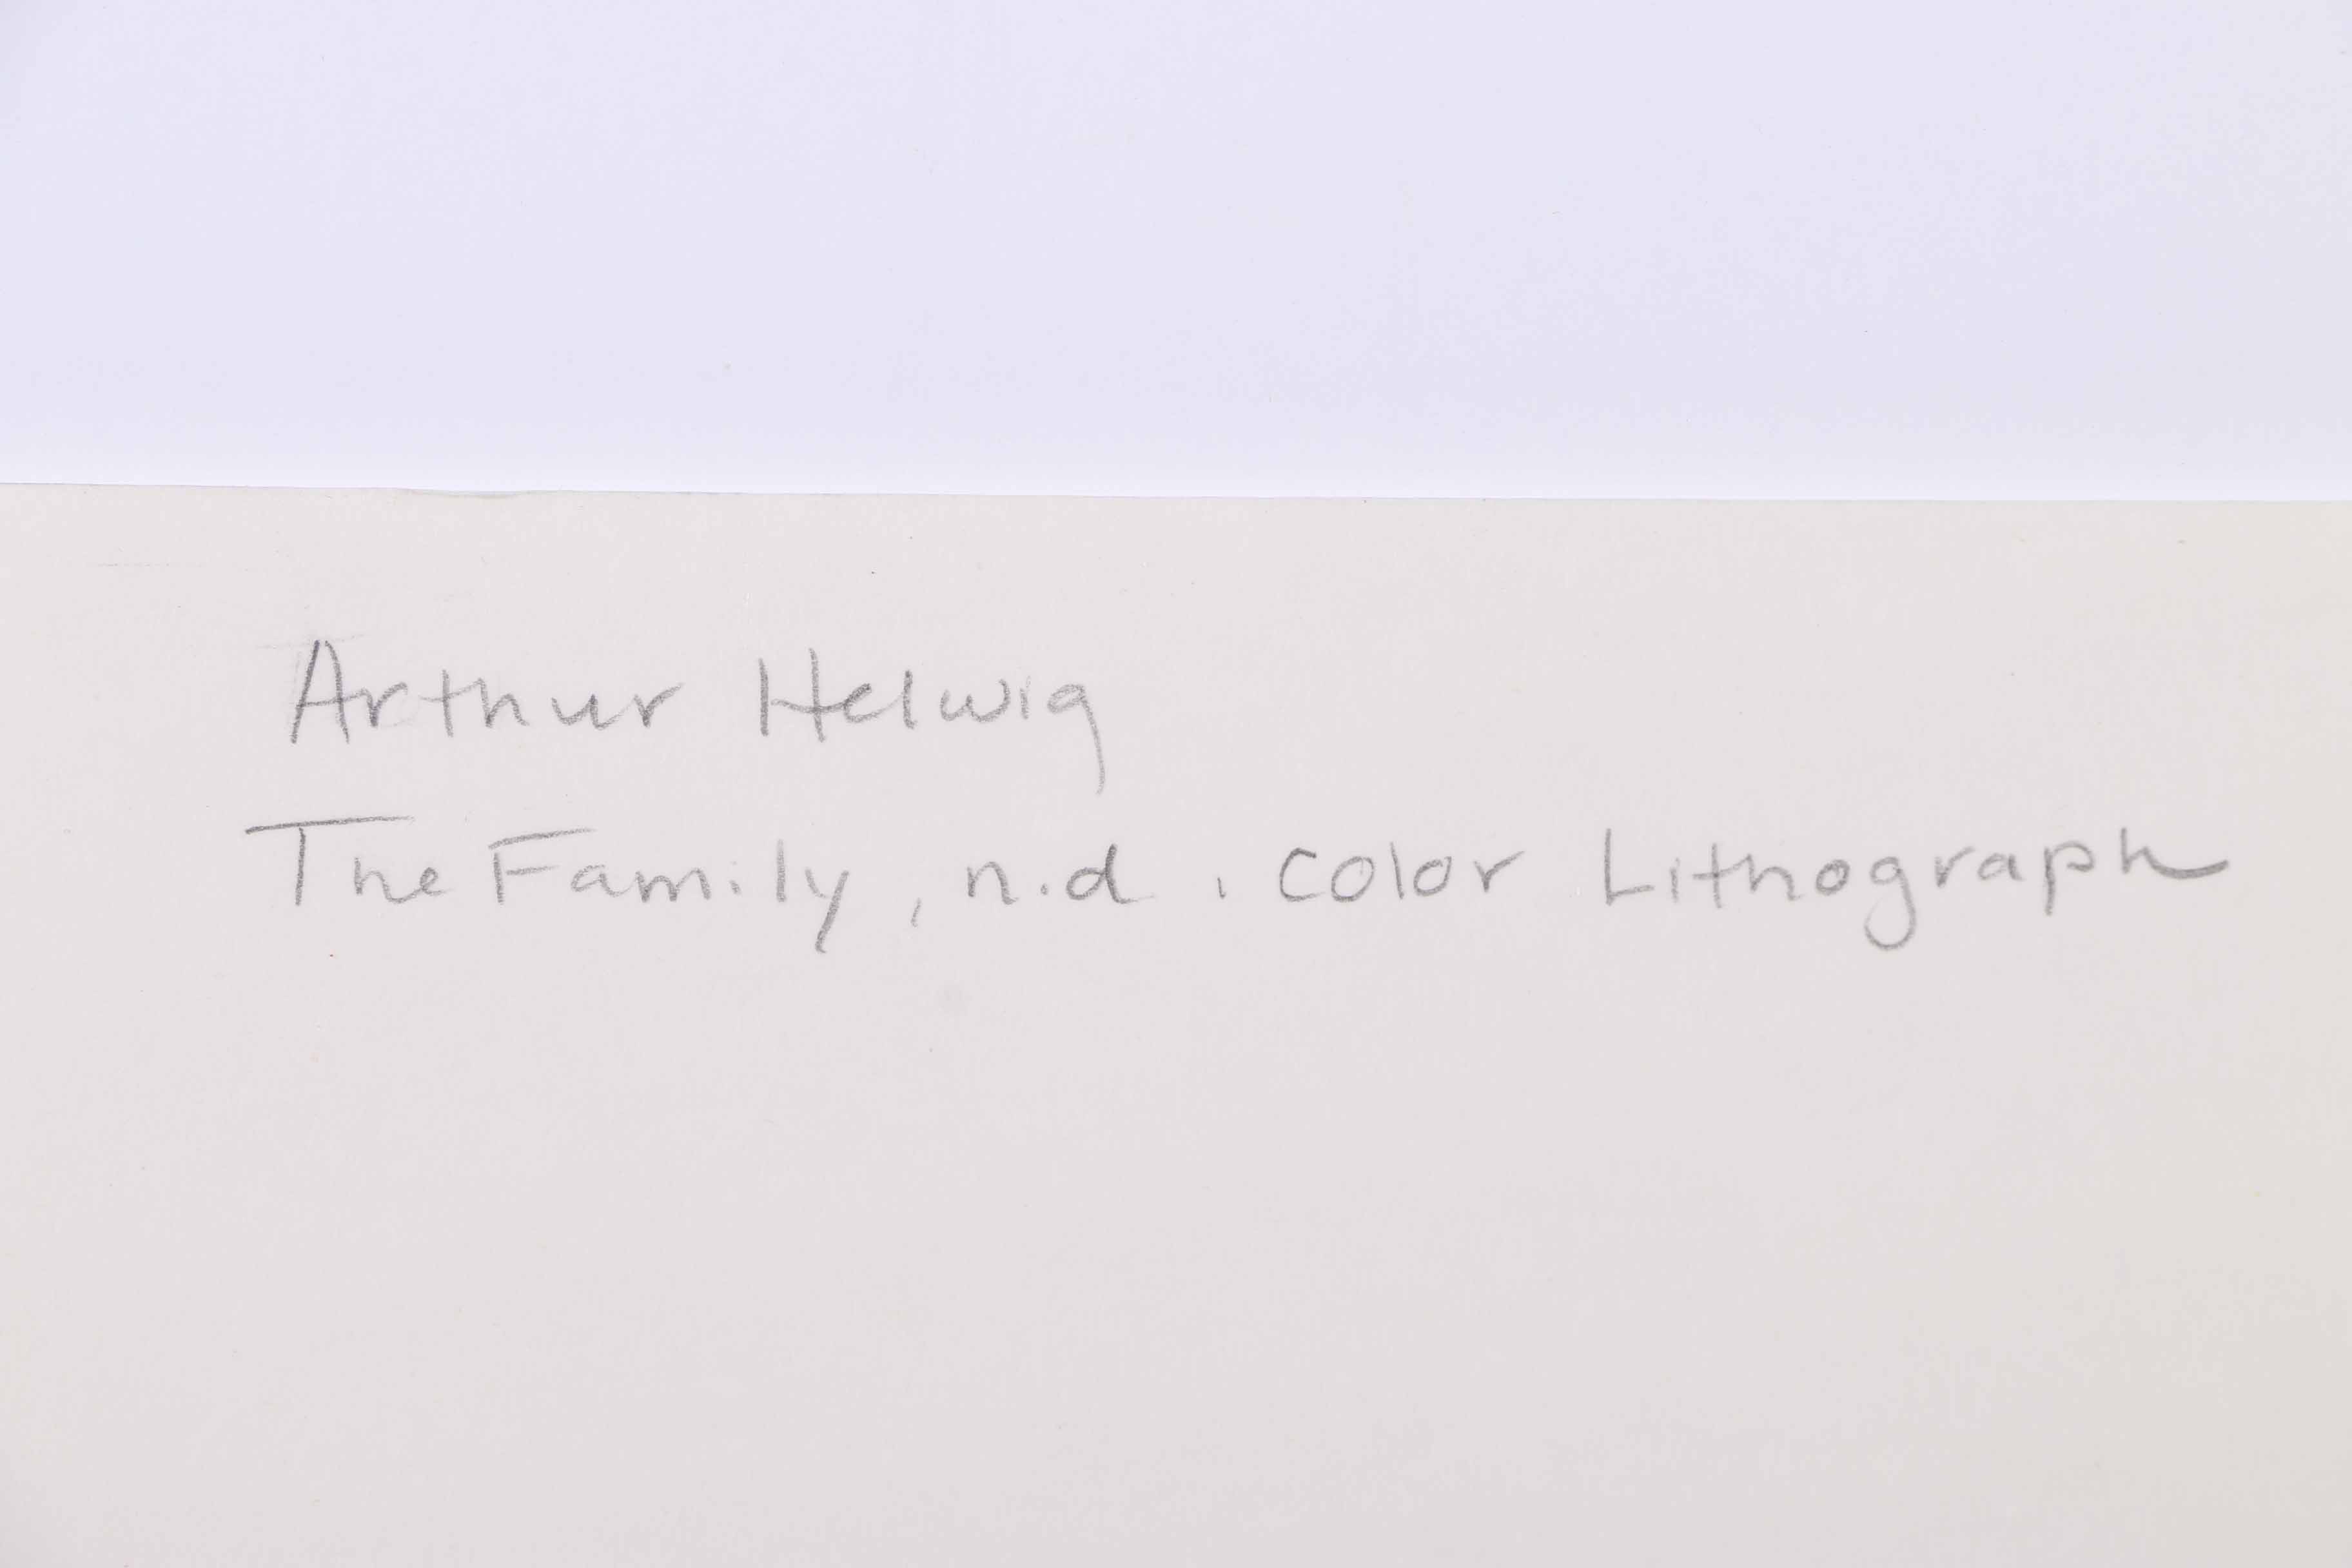 Arthur Helwig
The Family, n.d. Color Lithograph